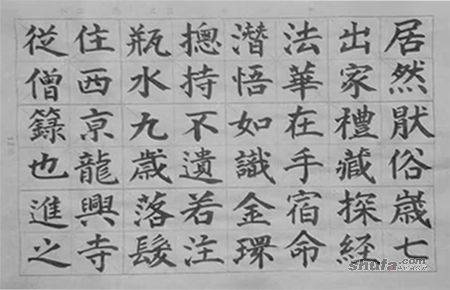 居然猒俗歲七
出家禮藏探經
法華在手宿命
潜悟如識金環
摠持不遺若注
瓶水九歲落髮
住西亰龍興寺
從僧籙也進之